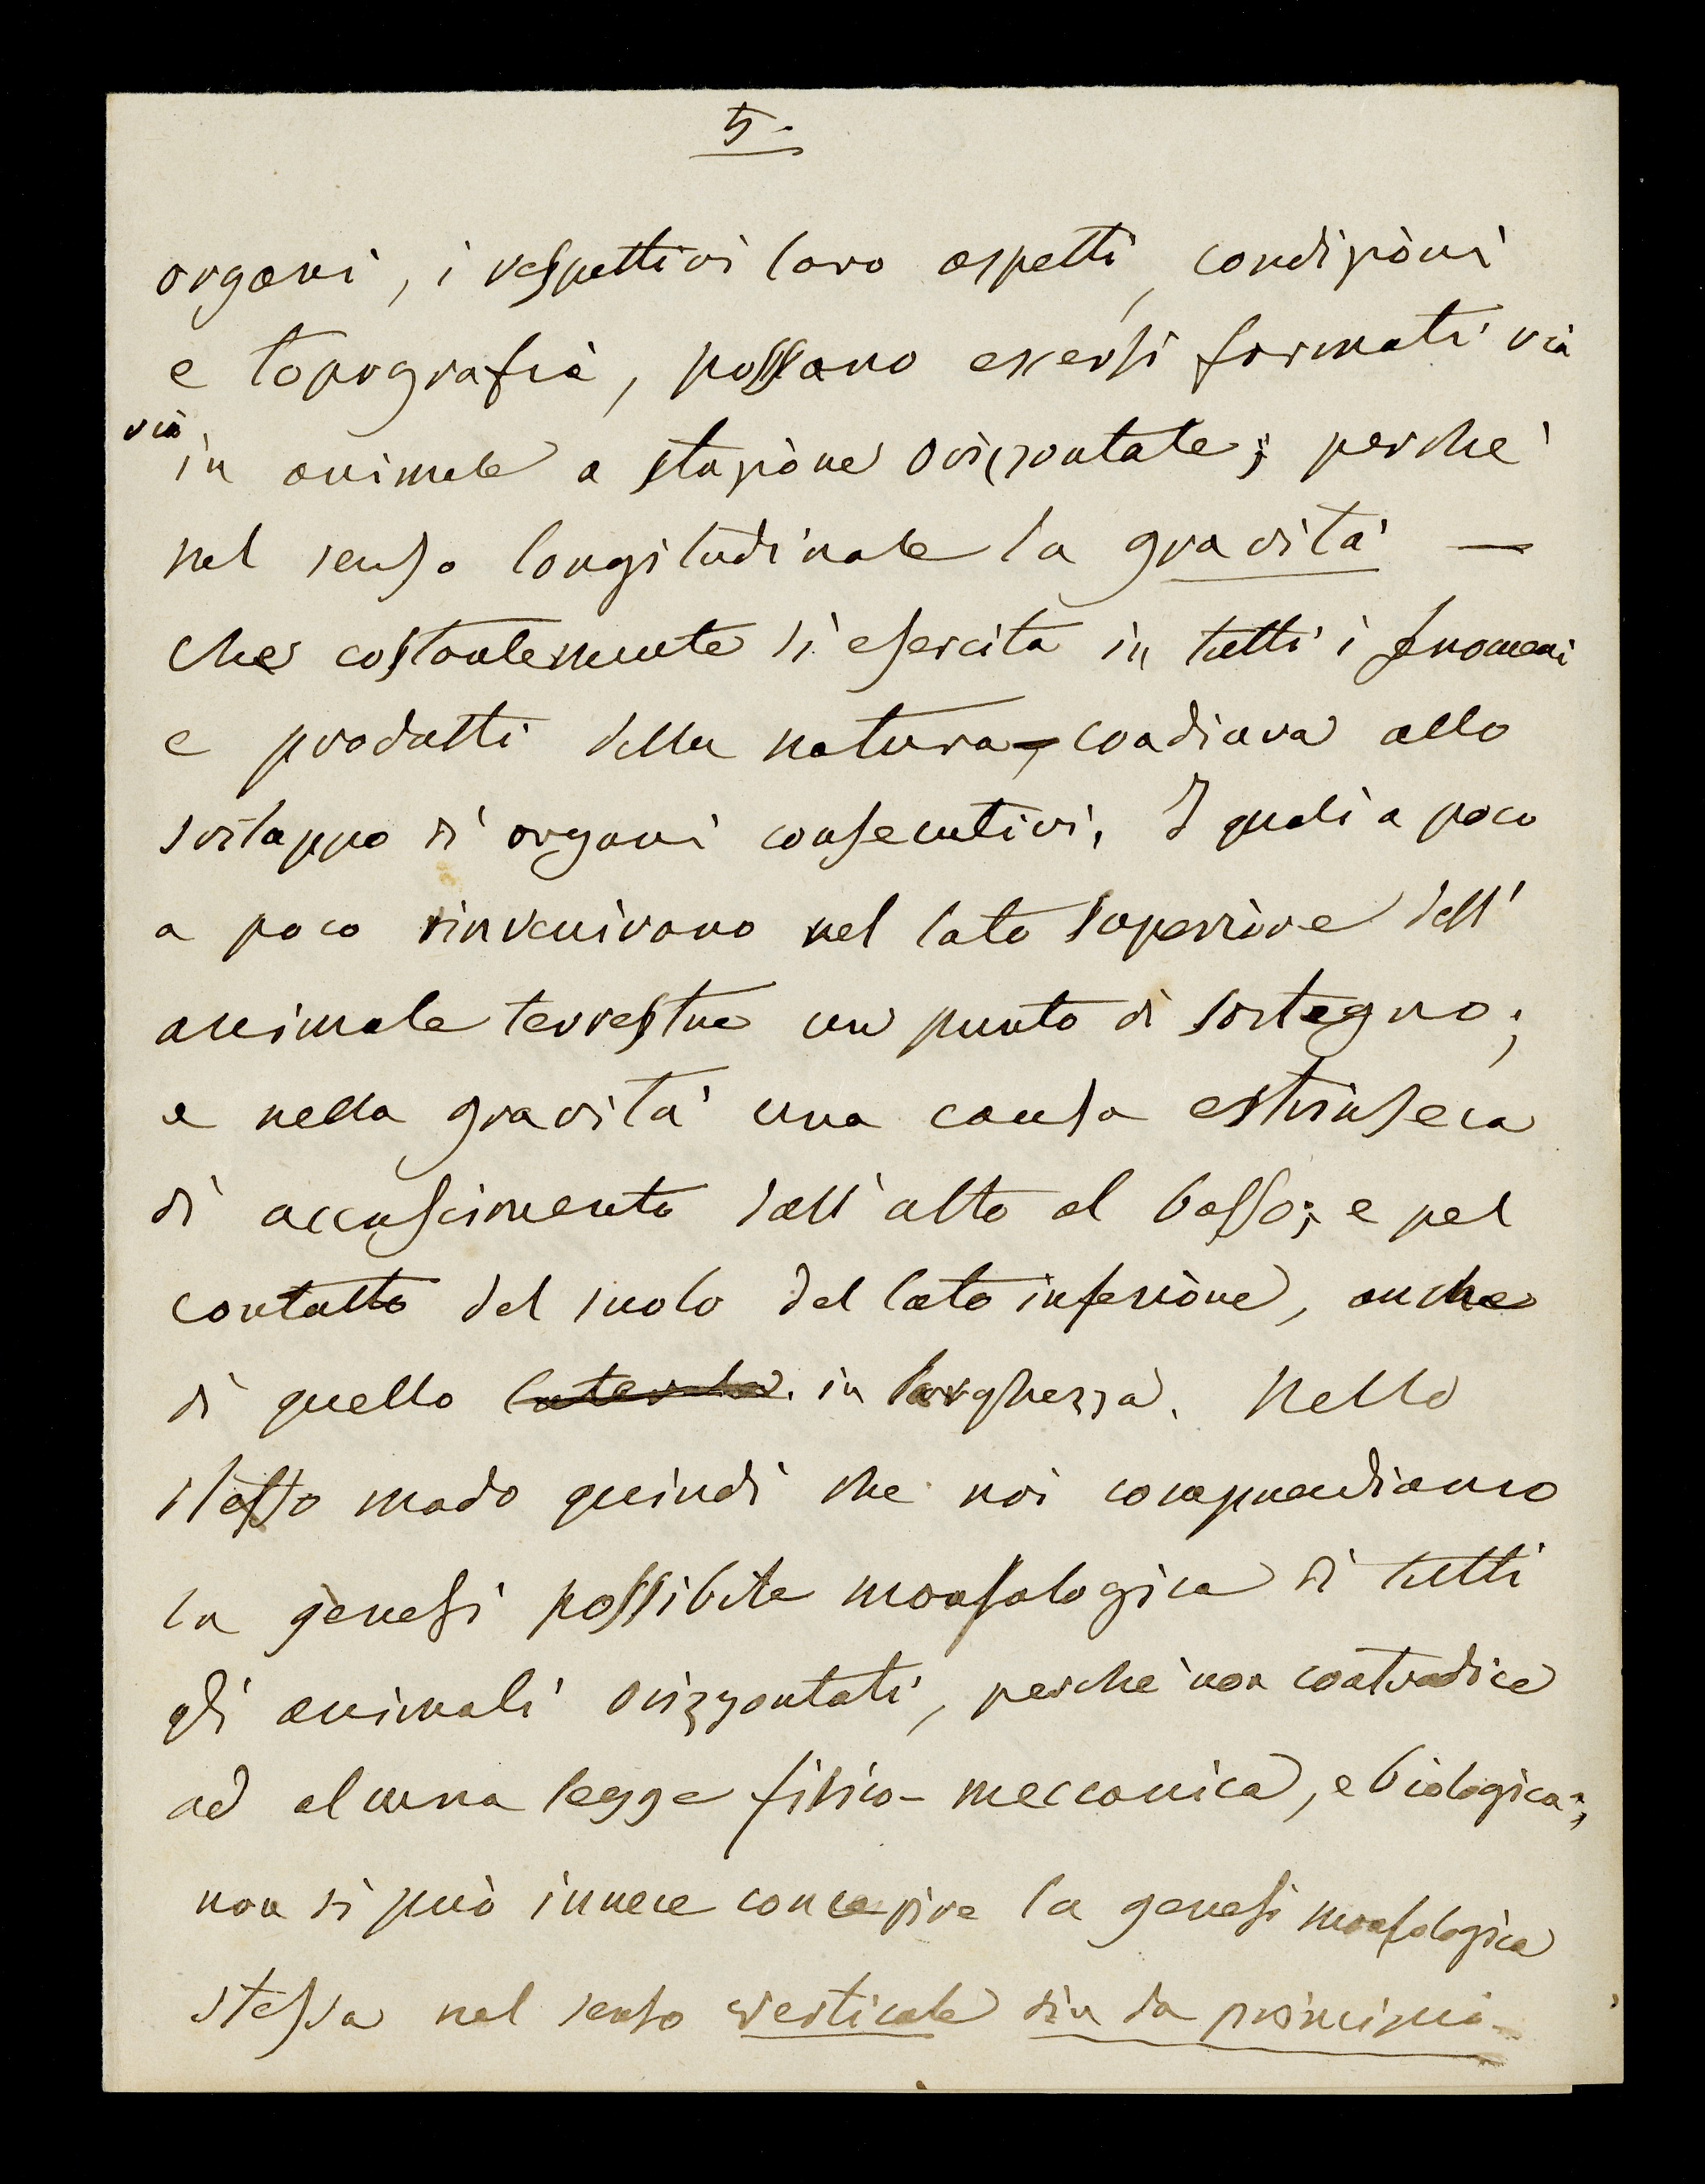 5.
organi, i respettivi loro aspetti, condizioni
e topografia, possano essersi formati via
via in animale a stazione orizzontale; perchè
nel senso longitudinale la gravità —
che costantemente si esercita in tutti i fenomeni
e prodotti della natura, coadiuva allo
sviluppo di organi consecutivi, I quali a poco
a poco rinvenivano nel lato superiore dell'
animale terrestre un punto di sostegno;
e nella gravità una causa estrinseca
di accrescimento dall'alto al basso; e pel
contatto del suolo del lato inferiore, anche
di quello laterale. in larghezza. Nello
stesso modo quindi che noi comprendiamo
la genesi possibile morfologica di tutti
gli animali orizzontali, perchè non contradice
ad alcuna legge fisico-meccanica, e biologica;
non si può invece concepire la genesi morfologica
stessa nel senso verticale sin da principio